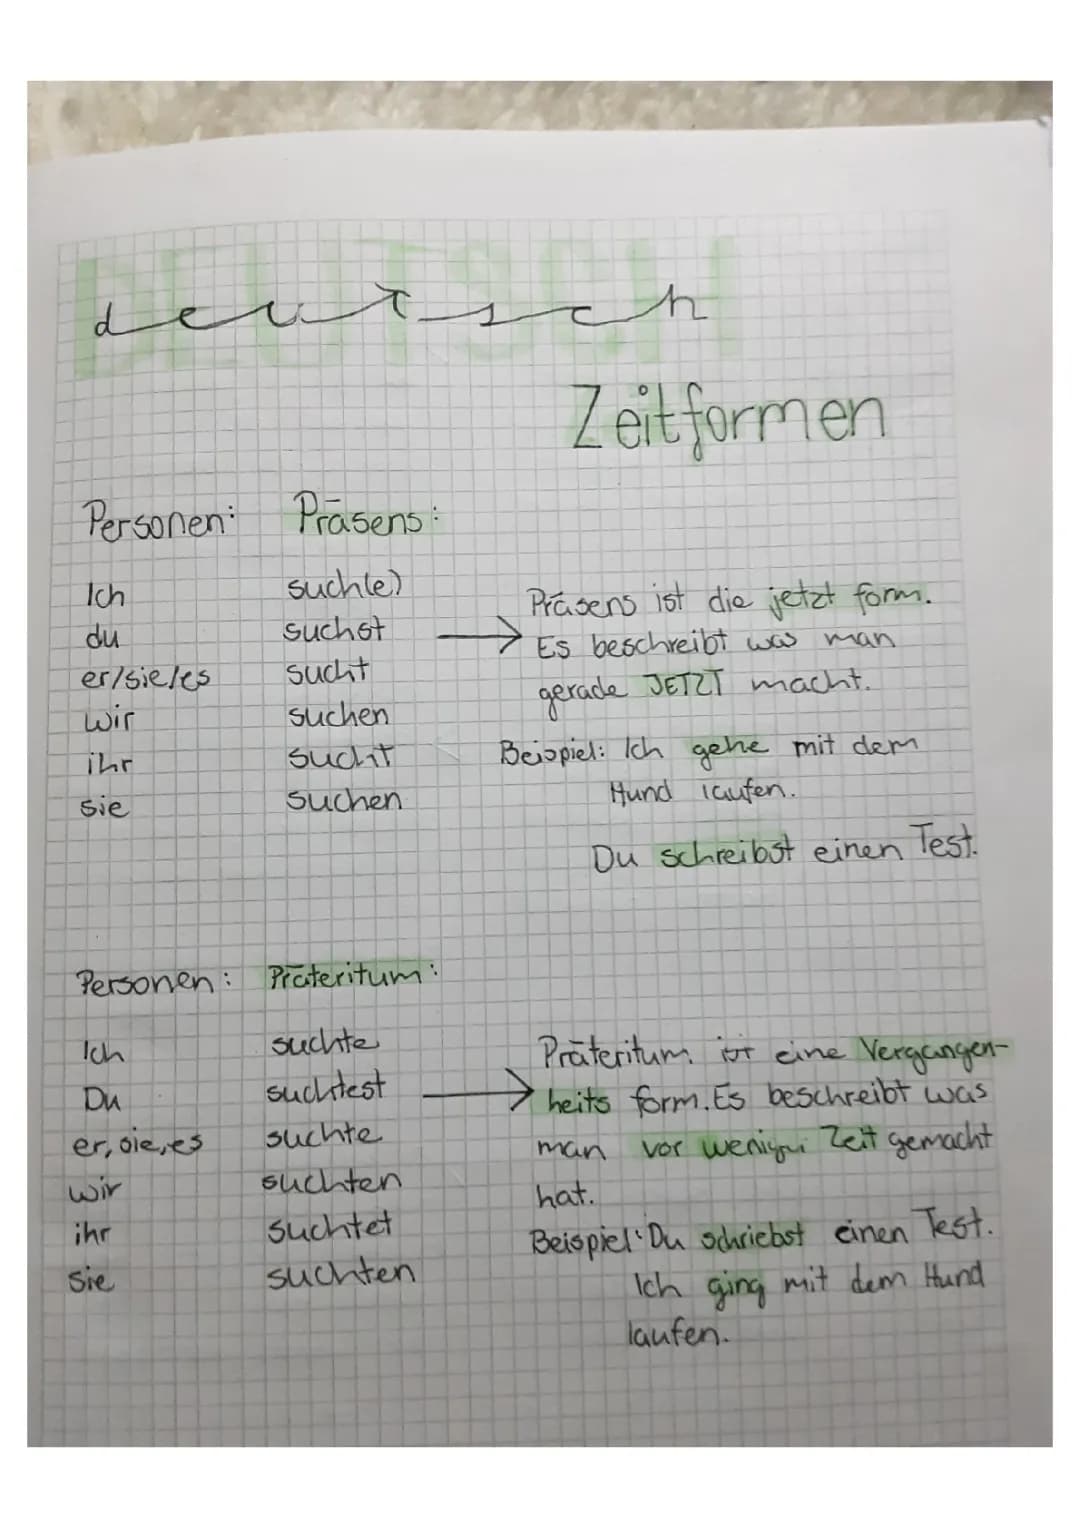 DEUTSCH
deutsch
Zeitformen
Personen: Präsens:
Ich such(e)
du suchst
er/sie/es sucht
wir suchen
ihr sucht
sie suchen
Präsens ist die jetzt form.
Es beschreibt was man
gerade JETZT macht.
Beispiel: Ich gehe mit dem
Hund laufen.
Du schreibst einen Test.
Personen: Präteritum:
Ich suchte
Du suchtest
er, sie, es suchte
wir suchten
ihr suchtet
sie suchten
Präteritum ist eine Vergangen-
heits form. Es beschreibt was
man vor weniger Zeit gemacht
hat.
Beispiel: Du schriebst einen Test.
Ich ging mit dem Hund
laufen.